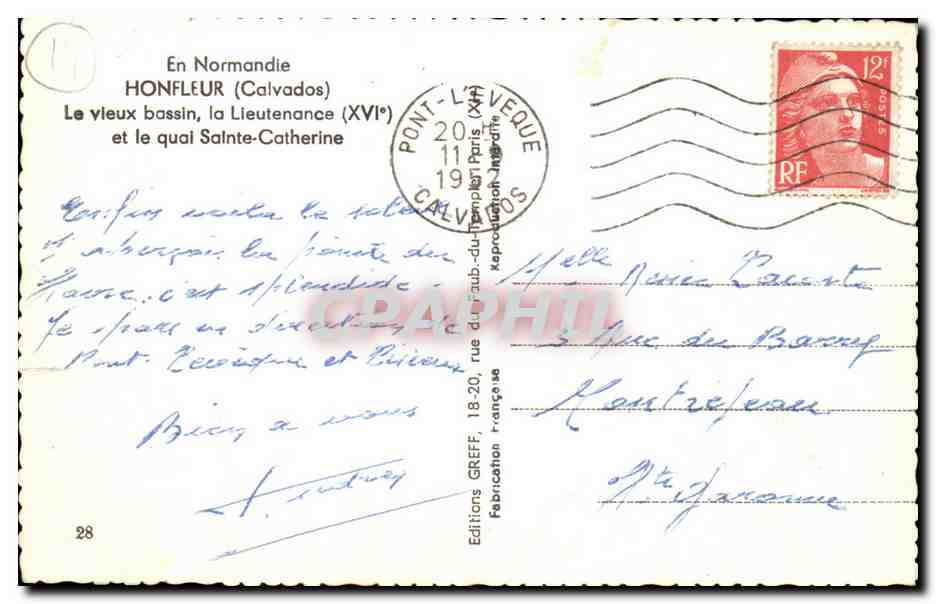 En Normandie
HONFLEUR (Calvados)
Le vieux bassin, la Lieutenance (XVIe)
et le quai Sainte-Catherine
PONT-L'EVEQUE
20 H
11
19
CALVADOS
12F
POSTES
RF
Enfin voilà le soleil
J'aperçois la pointe du
Havre, c'est splendide.
Je pars en direction de
Pont-l'Evêque et Lisieux
Bien à vous
Melle
3 Rue du Barry
Montrejeau
Hte Garonne
Editions GREFF, 18-20, rue du Faub.-du-Temple, Paris (XIe)
Fabrication Française
Reproduction Interdite
CPAPHIL
28